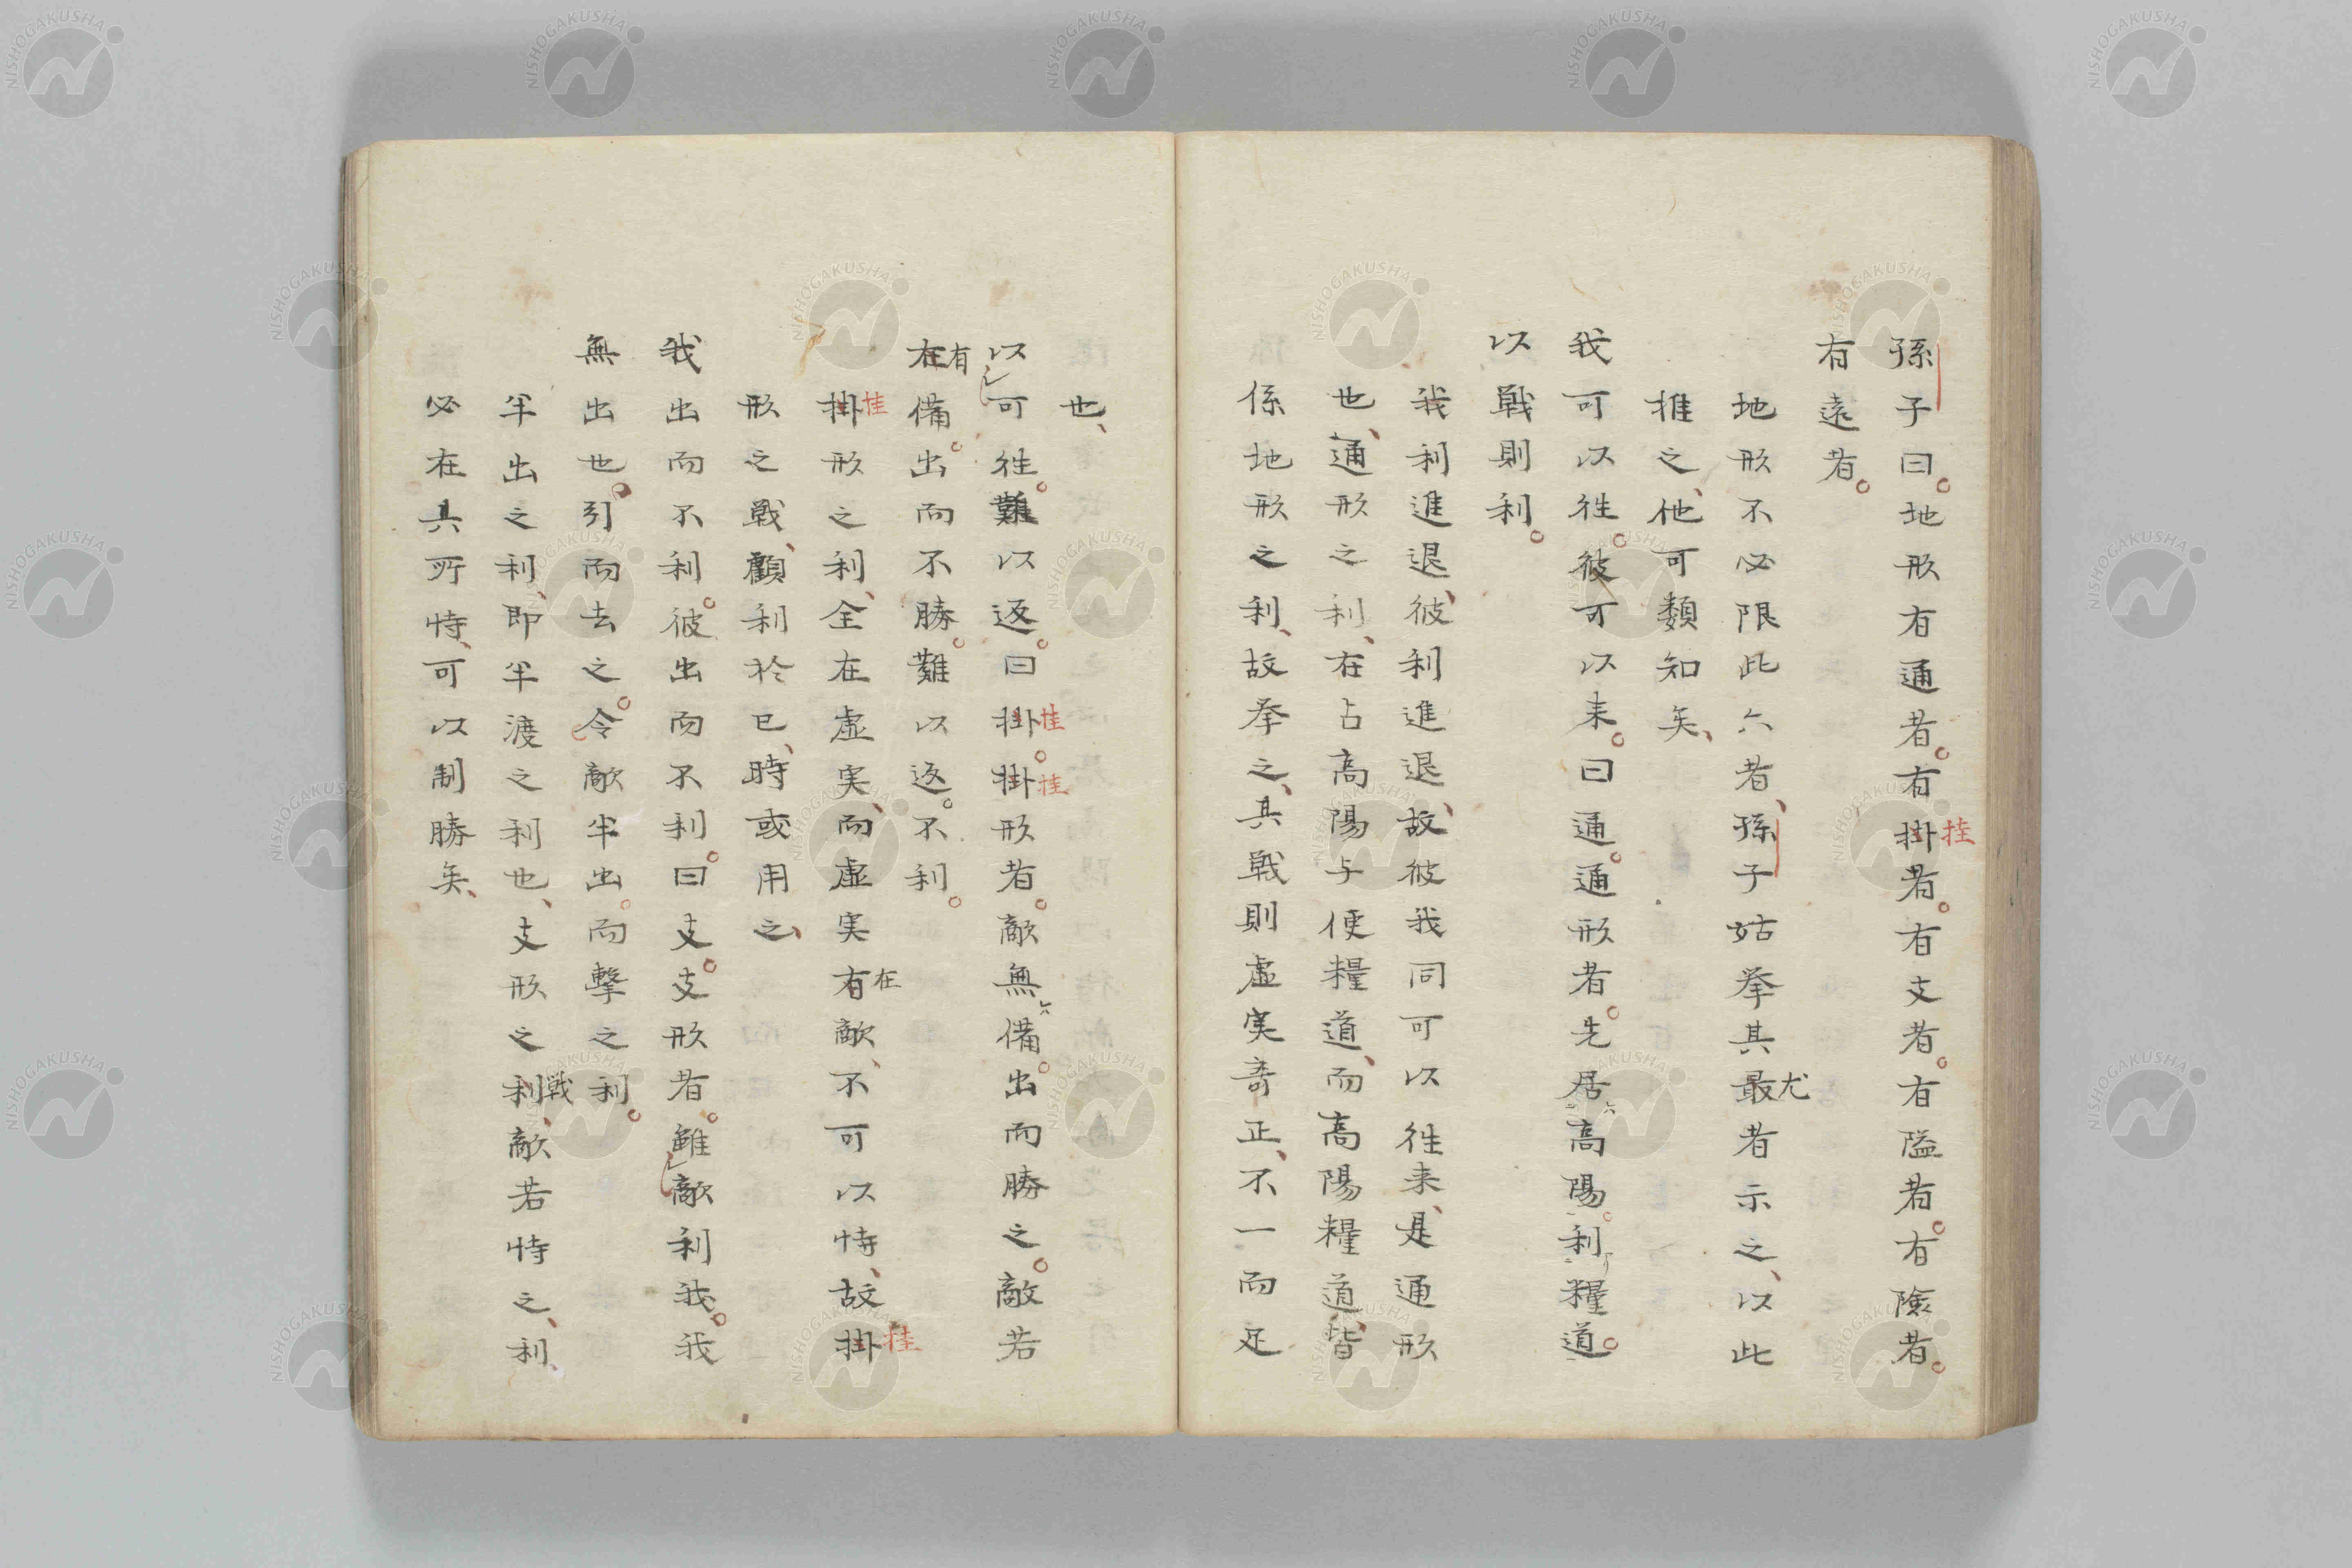 孫子曰。地形有通者。有掛挂者。有支者。有隘者。有険者。
有遠者。
地形不必限此六者、孫子姑挙其最尤者示之、以此
推之、他可類知矣、
我可以往。彼可以来。曰通。通形者。先居高陽。利糧道。
以戦則利。
我利進退、彼利進退、故彼我同可以往来、是通形
也、通形之利、在占高陽与便糧道、而高陽糧道、皆
係地形之利、故挙之、其戦則虚実奇正、不一而足
也、
以可往。難以返。曰掛挂。掛挂形者。敵無備。出而勝之。敵若
在有備。出而不勝。難以返。不利。
掛挂形之利、全在虚実、而虚実有在敵、不可以恃、故掛挂
形之戦、顧利於已、時或用之、
我出而不利。彼出而不利。曰支。支形者。雖敵利我。我
無出也。引而去之。令敵半出。而撃之利。
半出之利、即半渡之利也、支形之利戦、敵若恃之、利
必在其所恃、可以制勝矣、
NISHOGAKUSHA